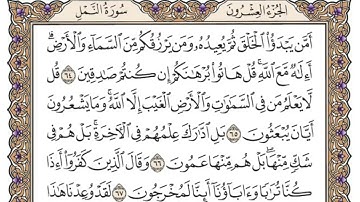 الجزء العشرون
سورة النمل
أَمَّن يَبْدَؤُا۟ ٱلْخَلْقَ ثُمَّ يُعِيدُهُۥ وَمَن يَرْزُقُكُم مِّنَ ٱلسَّمَآءِ وَٱلْأَرْضِ ۗ
أَءِلَٰهٌ مَّعَ ٱللَّهِ ۚ قُلْ هَاتُوا۟ بُرْهَٰنَكُمْ إِن كُنتُمْ صَٰدِقِينَ ٦٤ قُل
لَّا يَعْلَمُ مَن فِى ٱلسَّمَٰوَٰتِ وَٱلْأَرْضِ ٱلْغَيْبَ إِلَّا ٱللَّهُ ۚ وَمَا يَشْعُرُونَ
أَيَّانَ يُبْعَثُونَ ٦٥ بَلِ ٱدَّٰرَكَ عِلْمُهُمْ فِى ٱلْءَاخِرَةِ ۚ بَلْ هُمْ فِى
شَكٍّ مِّنْهَا ۖ بَلْ هُم مِّنْهَا عَمُونَ ٦٦ وَقَالَ ٱلَّذِينَ كَفَرُوٓا۟ أَءِذَا
كُنَّا تُرَٰبًا وَءَابَآؤُنَآ أَئِنَّا لَمُخْرَجُونَ ٦٧ لَقَدْ وُعِدْنَا هَٰذَا